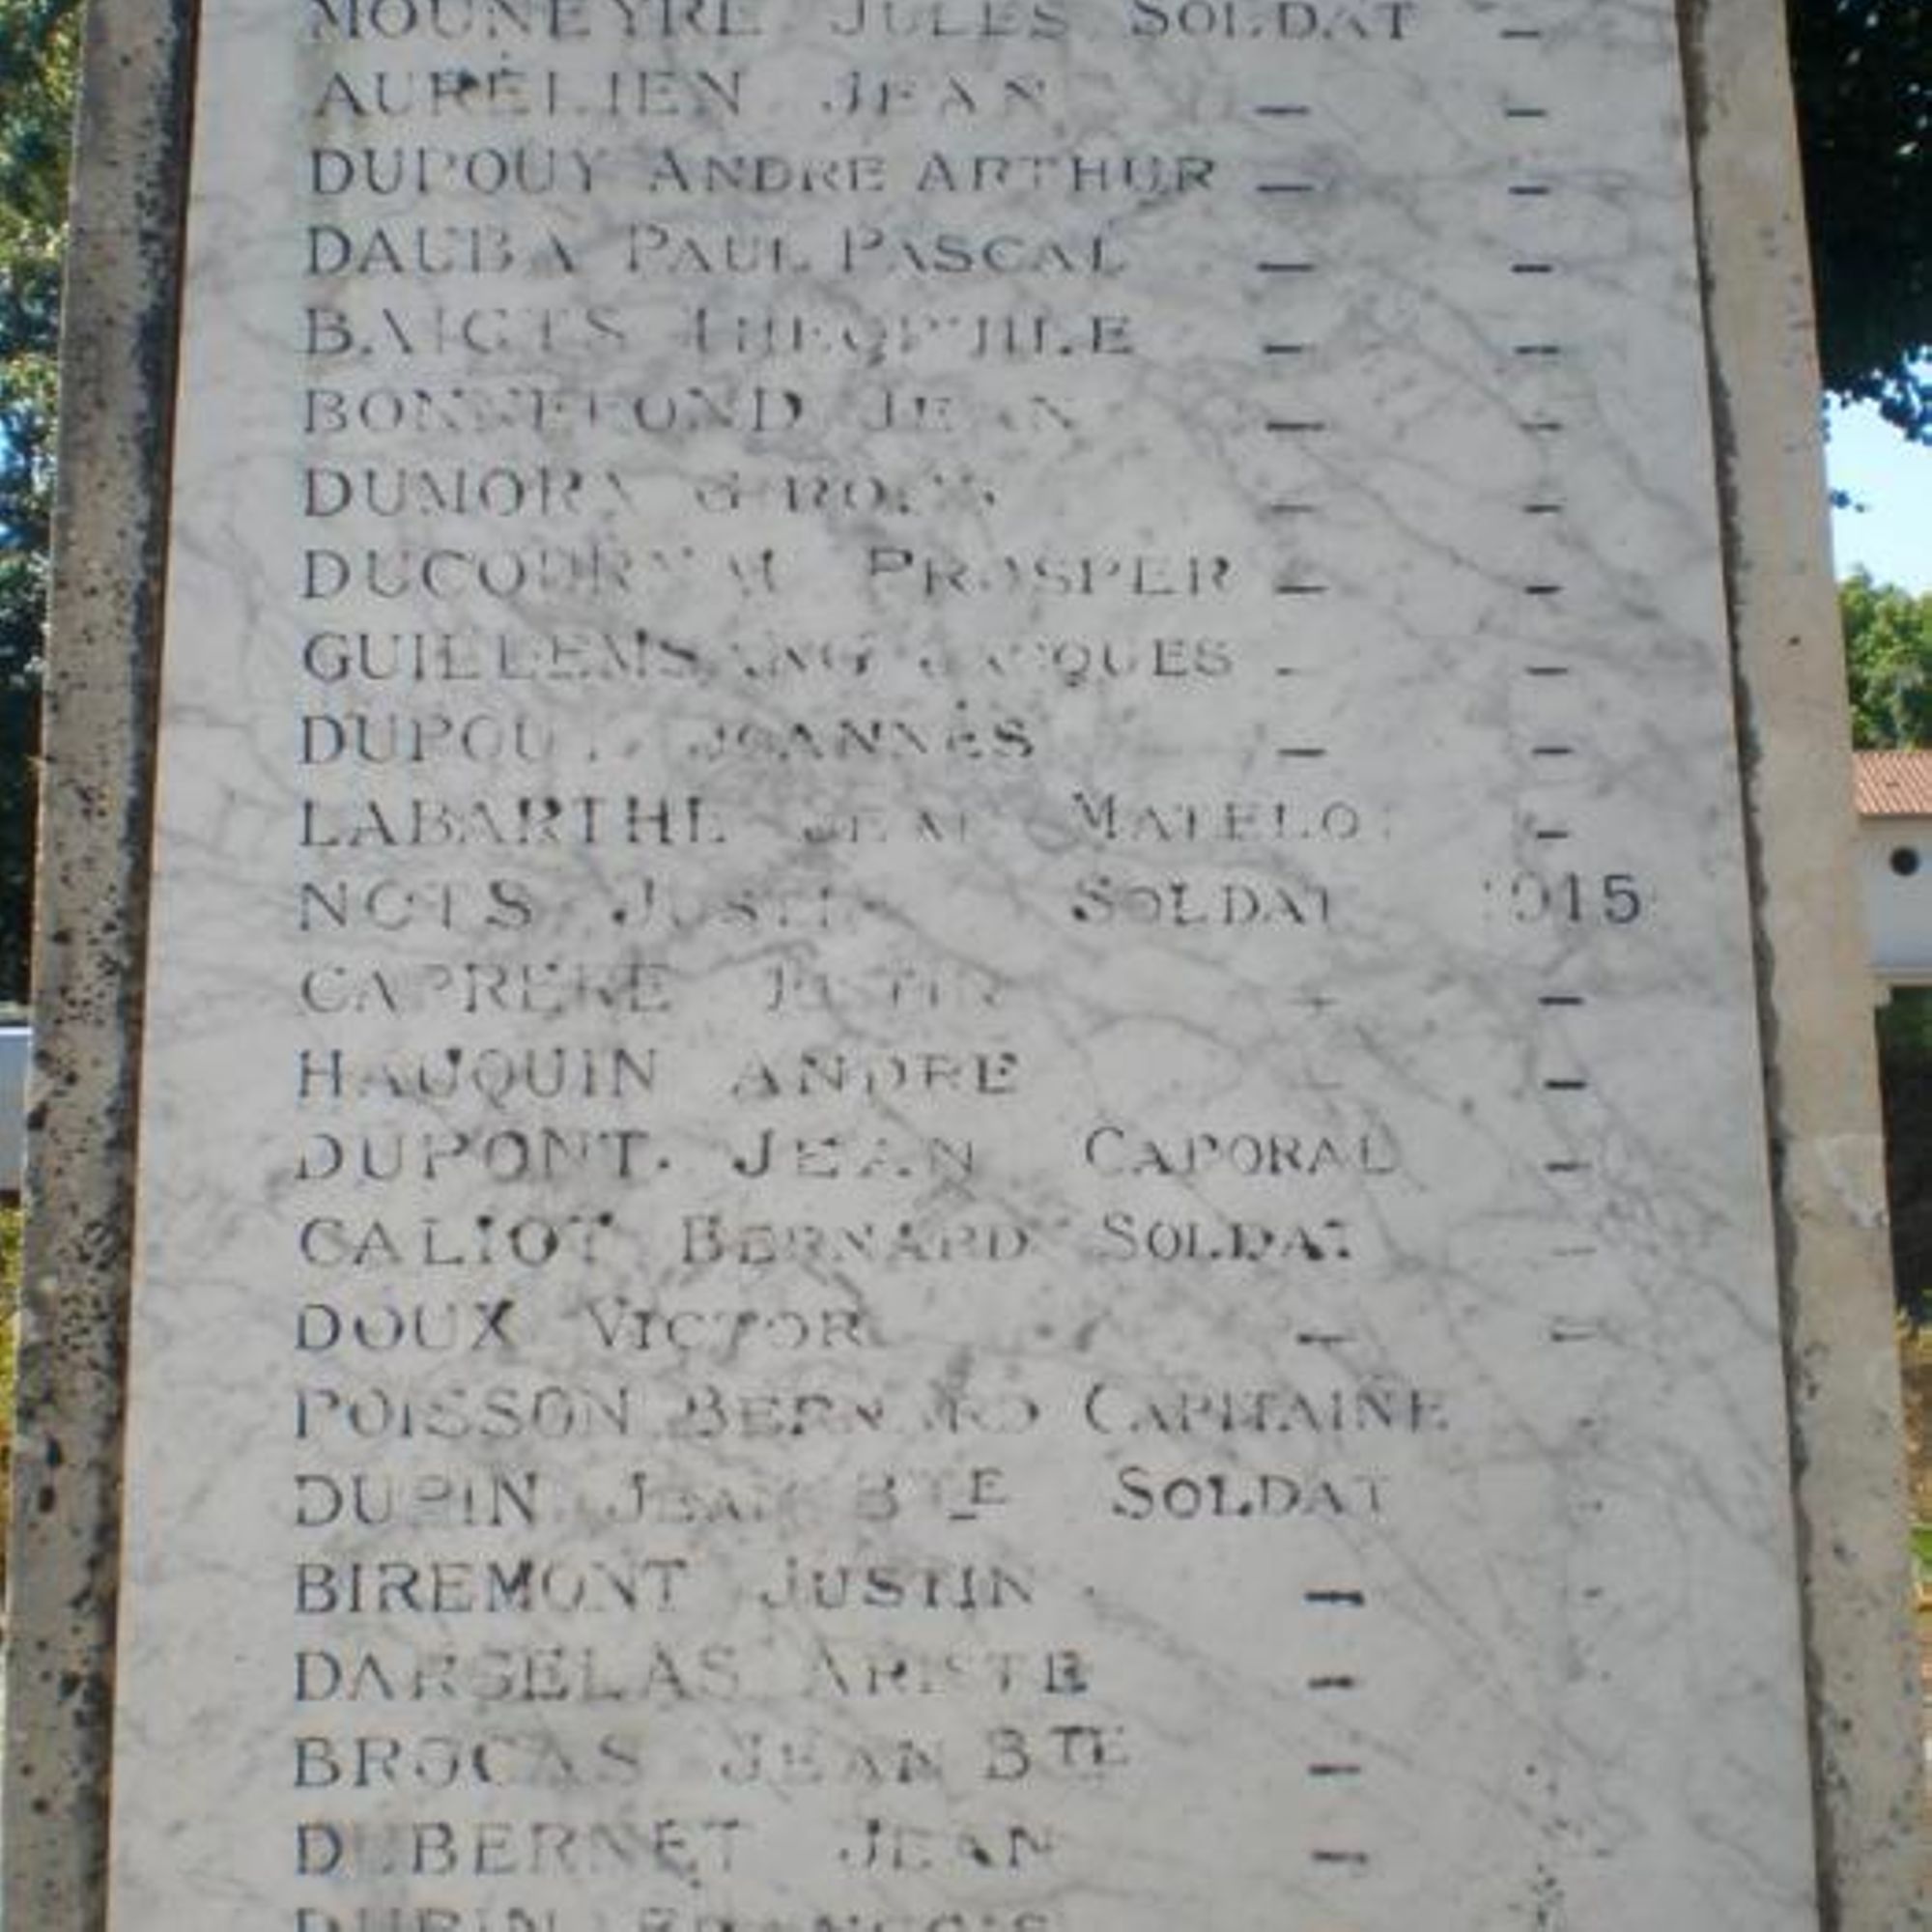 MOUNEYRE JULES SOLDAT —
AURÉLIEN JEAN — —
DUPOUY ANDRE ARTHUR — —
DAUBA PAUL PASCAL — —
BAIGTS THEOPHILE — —
BONNEFOND JEAN — —
DUMORA — —
DUCOURNAU PROSPER — —
JACQUES — —
DUPOUY JOANNÈS — —
LABARTHE JEAN MATELOT —
NOTS JUSTIN SOLDAT 1915
CAPRERE JUSTIN — —
HAUQUIN ANDRE — —
DUPONT JEAN CAPORAL —
CALIOT BERNARD SOLDAT —
DOUX VICTOR — —
POISSON BERNARD CAPITAINE -
DUPIN JEAN BTE SOLDAT -
BIREMONT JUSTIN — -
DARGELAS ARISTE —
BROCAS JEAN BTE —
DUBERNET JEAN —
DUPIN FRANÇOIS